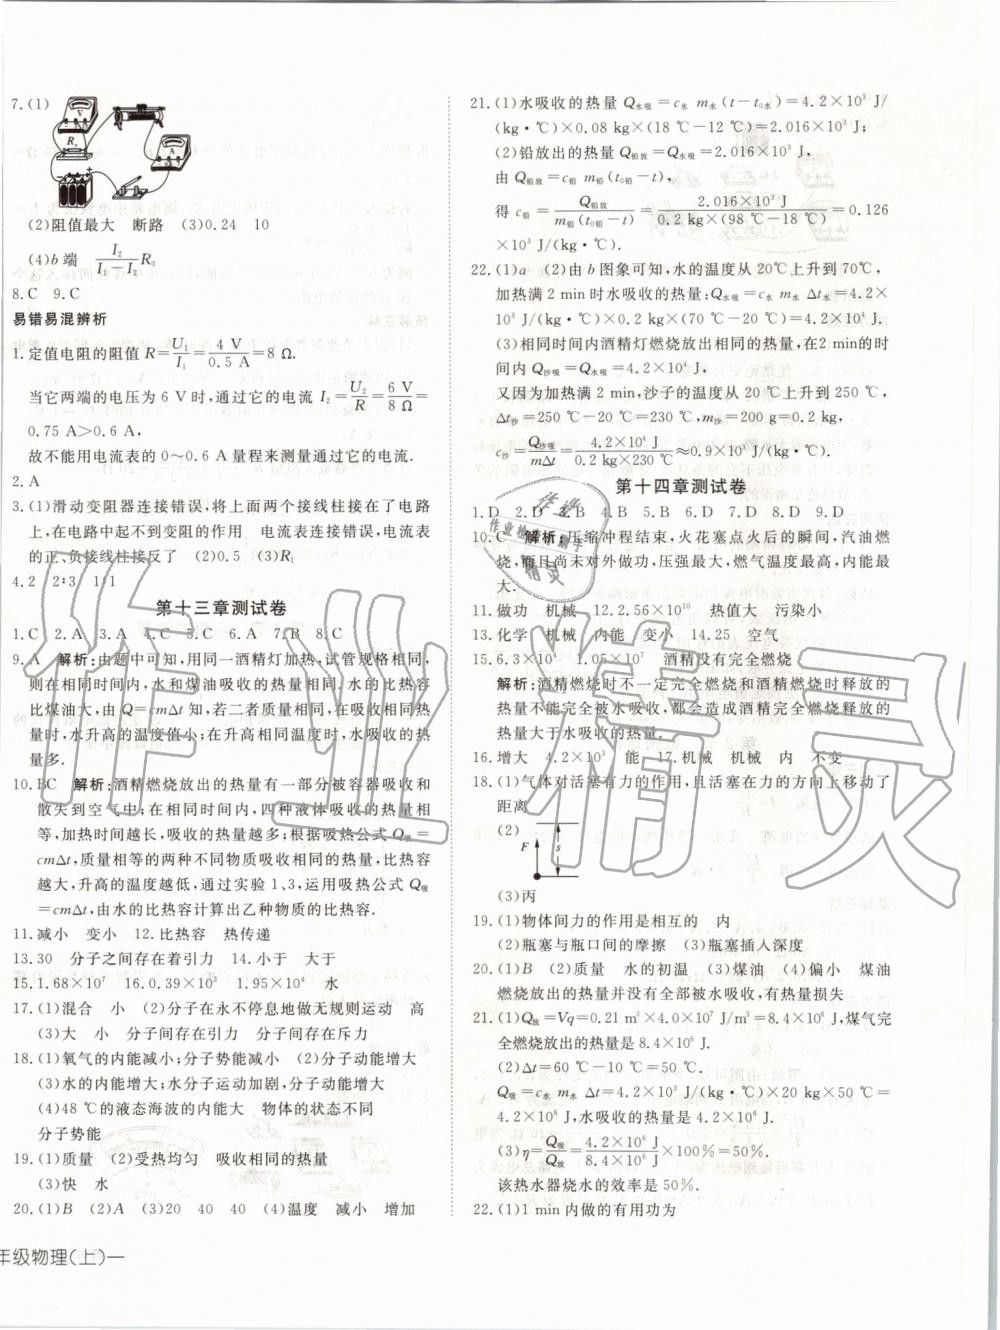 7.(1)
(2)阻值最大 断路 (3)0.24 10
(4)b端 I₂/(I₁-I₂)R₀
8.C 9.C
易错易混辨析
1.定值电阻的阻值R=U₁/I₁=4 V/0.5 A=8 Ω.
当它两端的电压为6 V时,通过它的电流I₂=U₂/R=6 V/8 Ω=
0.75 A>0.6 A,
故不能用电流表的0～0.6 A量程来测量通过它的电流.
2.A
3.(1)滑动变阻器连接错误,将上面两个接线柱接在了电路
上,在电路中起不到变阻的作用 电流表连接错误,电流表
的正、负接线柱接反了 (2)0.5 (3)R₁
4.2 2∶3 1∶1
第十三章测试卷
1.C 2.A 3.A 4.C 5.C 6.A 7.B 8.C
9.A 解析:由题中可知,用同一酒精灯加热,试管规格相同,
则在相同时间内,水和煤油吸收的热量相同,水的比热容
比煤油大,由Q=cmΔt知,若二者质量相同,在吸收相同热
量时,水升高的温度值小;在升高相同温度时,水吸收的热
量多.
10.BC 解析:酒精燃烧放出的热量有一部分被容器吸收和
散失到空气中;在相同时间内,四种液体吸收的热量相
等,加热时间越长,吸收的热量越多;根据吸热公式Q吸=
cmΔt,质量相等的两种不同物质吸收相同的热量,比热容
越大,升高的温度越低,通过实验1、3,运用吸热公式Q吸
=cmΔt,由水的比热容计算出乙种物质的比热容.
11.减小 变小 12.比热容 热传递
13.30 分子之间存在着引力 14.小于 大于
15.1.68×10⁷ 16.0.39×10³ 1.95×10⁴ 水
17.(1)混合 小 (2)分子在永不停息地做无规则运动 高
(3)大 小 分子间存在引力 分子间存在斥力
18.(1)氧气的内能减小;分子势能减小 (2)分子动能增大
(3)水的内能增大;水分子运动加剧,分子动能增大
(4)48 ℃的液态海波的内能大 物体的状态不同
分子势能
19.(1)质量 (2)受热均匀 吸收相同的热量
(3)快 水
20.(1)B (2)A (3)20 40 40 (4)温度 减小 增加
年级物理(上)—
21.(1)水吸收的热量Q水吸=c水 m水(t-t₀水)=4.2×10³ J/
(kg·℃)×0.08 kg×(18 ℃-12 ℃)=2.016×10³ J;
(2)铅放出的热量Q铅放=Q水吸=2.016×10³ J,
由Q铅放=c铅 m铅(t₀铅-t),
得c铅=Q铅放/m铅(t₀铅-t)=2.016×10³ J/0.2 kg×(98 ℃-18 ℃)=0.126
×10³ J/(kg·℃).
22.(1)a (2)由b图象可知,水的温度从20℃上升到70℃,
加热满2 min时水吸收的热量:Q水吸=c水 m水 Δt水=4.2×
10³ J/(kg·℃)×0.2 kg×(70 ℃-20 ℃)=4.2×10⁴ J.
(3)相同时间内酒精灯燃烧放出相同的热量,在2 min的时
间内Q沙吸=Q水吸=4.2×10⁴ J,
又因为加热满2 min,沙子的温度从20 ℃上升到250 ℃,
Δt沙=250 ℃-20 ℃=230 ℃,m沙=200 g=0.2 kg,
c沙=Q沙吸/mΔt=4.2×10⁴ J/0.2 kg×230 ℃≈0.9×10³ J/(kg·℃).
第十四章测试卷
1.D 2.D 3.B 4.B 5.B 6.D 7.D 8.D 9.D
10.C 解析:压缩冲程结束,火花塞点火后的瞬间,汽油燃
烧,且尚未对外做功,压强最大,燃气温度最高,内能最
大.
11.做功 机械 12.2.56×10¹⁰ 热值大 污染小
13.化学 机械 内能 变小 14.25 空气
15.6.3×10⁴ 1.05×10⁷ 酒精没有完全燃烧
解析:酒精燃烧时不一定完全燃烧和酒精燃烧时释放的
热量不能完全被水吸收,都会造成酒精完全燃烧释放的
热量大于水吸收的热量.
16.增大 4.2×10³ 能 17.机械 机械 内 不变
18.(1)气体对活塞有力的作用,且活塞在力的方向上移动了
距离
(2) F s
(3)丙
19.(1)物体间力的作用是相互的 内
(2)瓶塞与瓶口间的摩擦 (3)瓶塞插入深度
20.(1)B (2)质量 水的初温 (3)煤油 (4)偏小 煤油
燃烧放出的热量并没有全部被水吸收,有热量损失
21.(1)Q放=Vq=0.21 m³×4.0×10⁷ J/m³=8.4×10⁶ J,煤气完
全燃烧放出的热量是8.4×10⁶ J.
(2)Δt=60 ℃-10 ℃=50 ℃.
Q吸=c水 m水 Δt=4.2×10³ J/(kg·℃)×20 kg×50 ℃=
4.2×10⁶ J,水吸收的热量是4.2×10⁶ J.
(3)η=Q吸/Q放=4.2×10⁶ J/8.4×10⁶ J×100%=50%.
该热水器烧水的效率是50%.
22.(1)1 min内做的有用功为
作业精灵